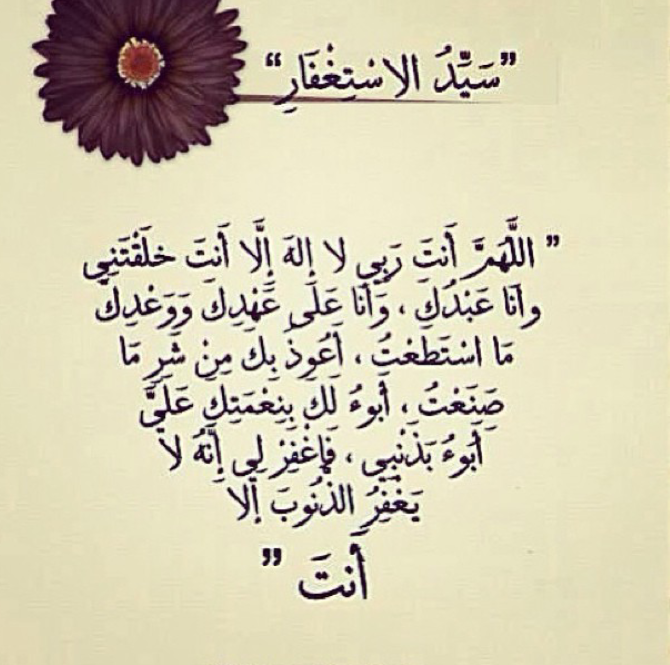 ”سَيِّدُ الاسْتِغْفَارِ“
” اللَّهُمَّ أَنتَ رَبِي لا إلهَ إلَّا أَنتَ خلَقْتَنِي
وأنَا عَبْدُكَ ، وَأنَا عَلَى عَهْدِكَ وَوَعْدِكَ
مَا اسْتَطَعْتُ ، أَعُوذُ بِكَ مِنْ شَرِ مَا
صَنَعْتُ ، أَبوءُ لَكَ بِنِعْمَتِكَ عَلَيَّ
أَبوءُ بَذَنْبِي ، فَاِغْفِرْ لِي إِنَّهُ لا
يَغْفِرُ الذُنُوبَ إلا
أَنتَ ”